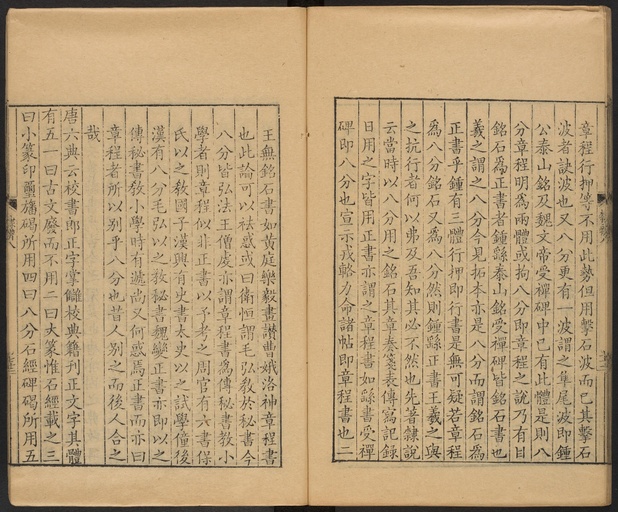 章程行押等不用此勢但用擊石波而已其擊石
波者訣波也又八分更有一波謂之隼尾波即鍾
公泰山銘及魏文帝受禪碑中已有此體是則八
分章程明為兩體或拘八分即章程之說乃有目
銘石爲正書者鍾繇泰山銘受禪碑皆銘石書也
羲之謂之八分今見拓本亦是八分而謂銘石爲
正書乎鍾有三體行押即行書是無可疑若章程
爲八分銘石又爲八分然則鍾繇正書王羲之與
之抗行者何以弗及吾知其必不然也先著隸說
云當時以八分用之銘石其章奏箋表傳寫記錄
日用之字皆用正書亦謂之章程書如繇書受禪
碑即八分也宣示戎輅力命諸帖即章程書也二
王無銘石書如黃庭樂毅畫讚曹娥洛神章程書
也此論可以祛惑或曰衛恒謂毛弘敎於秘書今
八分皆弘法王僧虔亦謂章程書爲傳秘書教小
學者則章程似非正書以予考之周官有六書保
氏以之敎國子漢興有史書太史以之試學僮後
漢有八分毛弘以之敎秘書魏變正書亦即以之
傳秘書敎小學時有遞尚又何惑焉正書而亦曰
章程者所以別乎八分也昔人別之而後人合之
哉
唐六典云校書郎正字掌讎校典籍刊正文字其體
有五一曰古文廢而不用二曰大篆惟石經載之三
曰小篆印璽旛碣所用四曰八分石經碑碣所用五